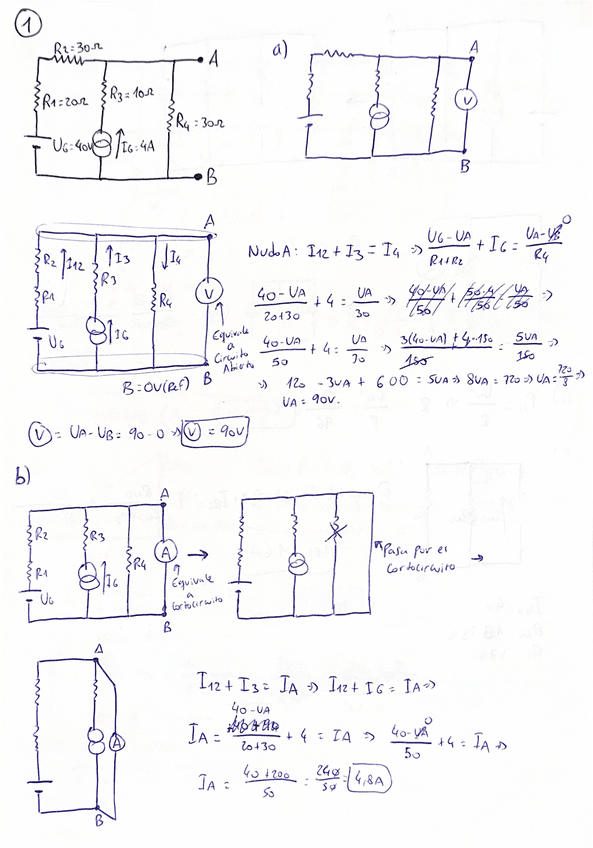 1
R2=30Ω
A
R1=20Ω
R3=10Ω
R4=30Ω
UG=40V
IG=4A
B
a)
A
V
B
A
R2
I12
I3
R3
I4
R1
R4
V
UG
IG
Equivale
a
Circuito
Abierto
B=0V(Ref)
B
Nudo A: I12 + I3 = I4 => (UG-UA)/(R1+R2) + IG = (UA-UB)/R4
0
(40-UA)/(20+30) + 4 = UA/30 =>
(40-UA)/50 + 4 = UA/30 => (3(40-UA) + 4·150)/150 = 5UA/150 =>
=> 120 - 3UA + 600 = 5UA => 8UA = 720 => UA = 720/8 =>
UA = 90V.
V = UA-UB = 90-0 => V = 90V
b)
A
R2
R3
R4
A
R1
IG
UG
Equivale
a
Cortocircuito
B
Pasa por el
Cortocircuito
A
A
B
I12 + I3 = IA => I12 + IG = IA =>
IA = (40-UA)/(20+30) + 4 = IA => (40-UA)/50 + 4 = IA =>
0
IA = (40+200)/50 = 240/50 = 4,8A